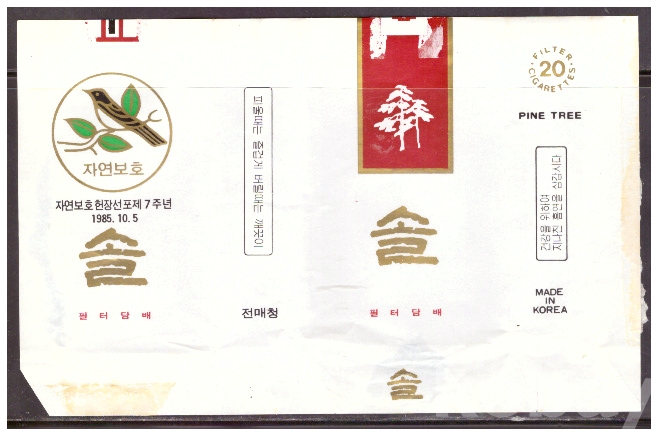 자연보호
자연보호헌장선포제7주년
1985.10.5
솔
필터담배
피울때는 즐겁게 버릴때는 깨끗이
전매청
솔
필터담배
솔
FILTER
20
CIGARETTES
PINE TREE
건강을 위하여
지나친 흡연을 삼갑시다
MADE
IN
KOREA